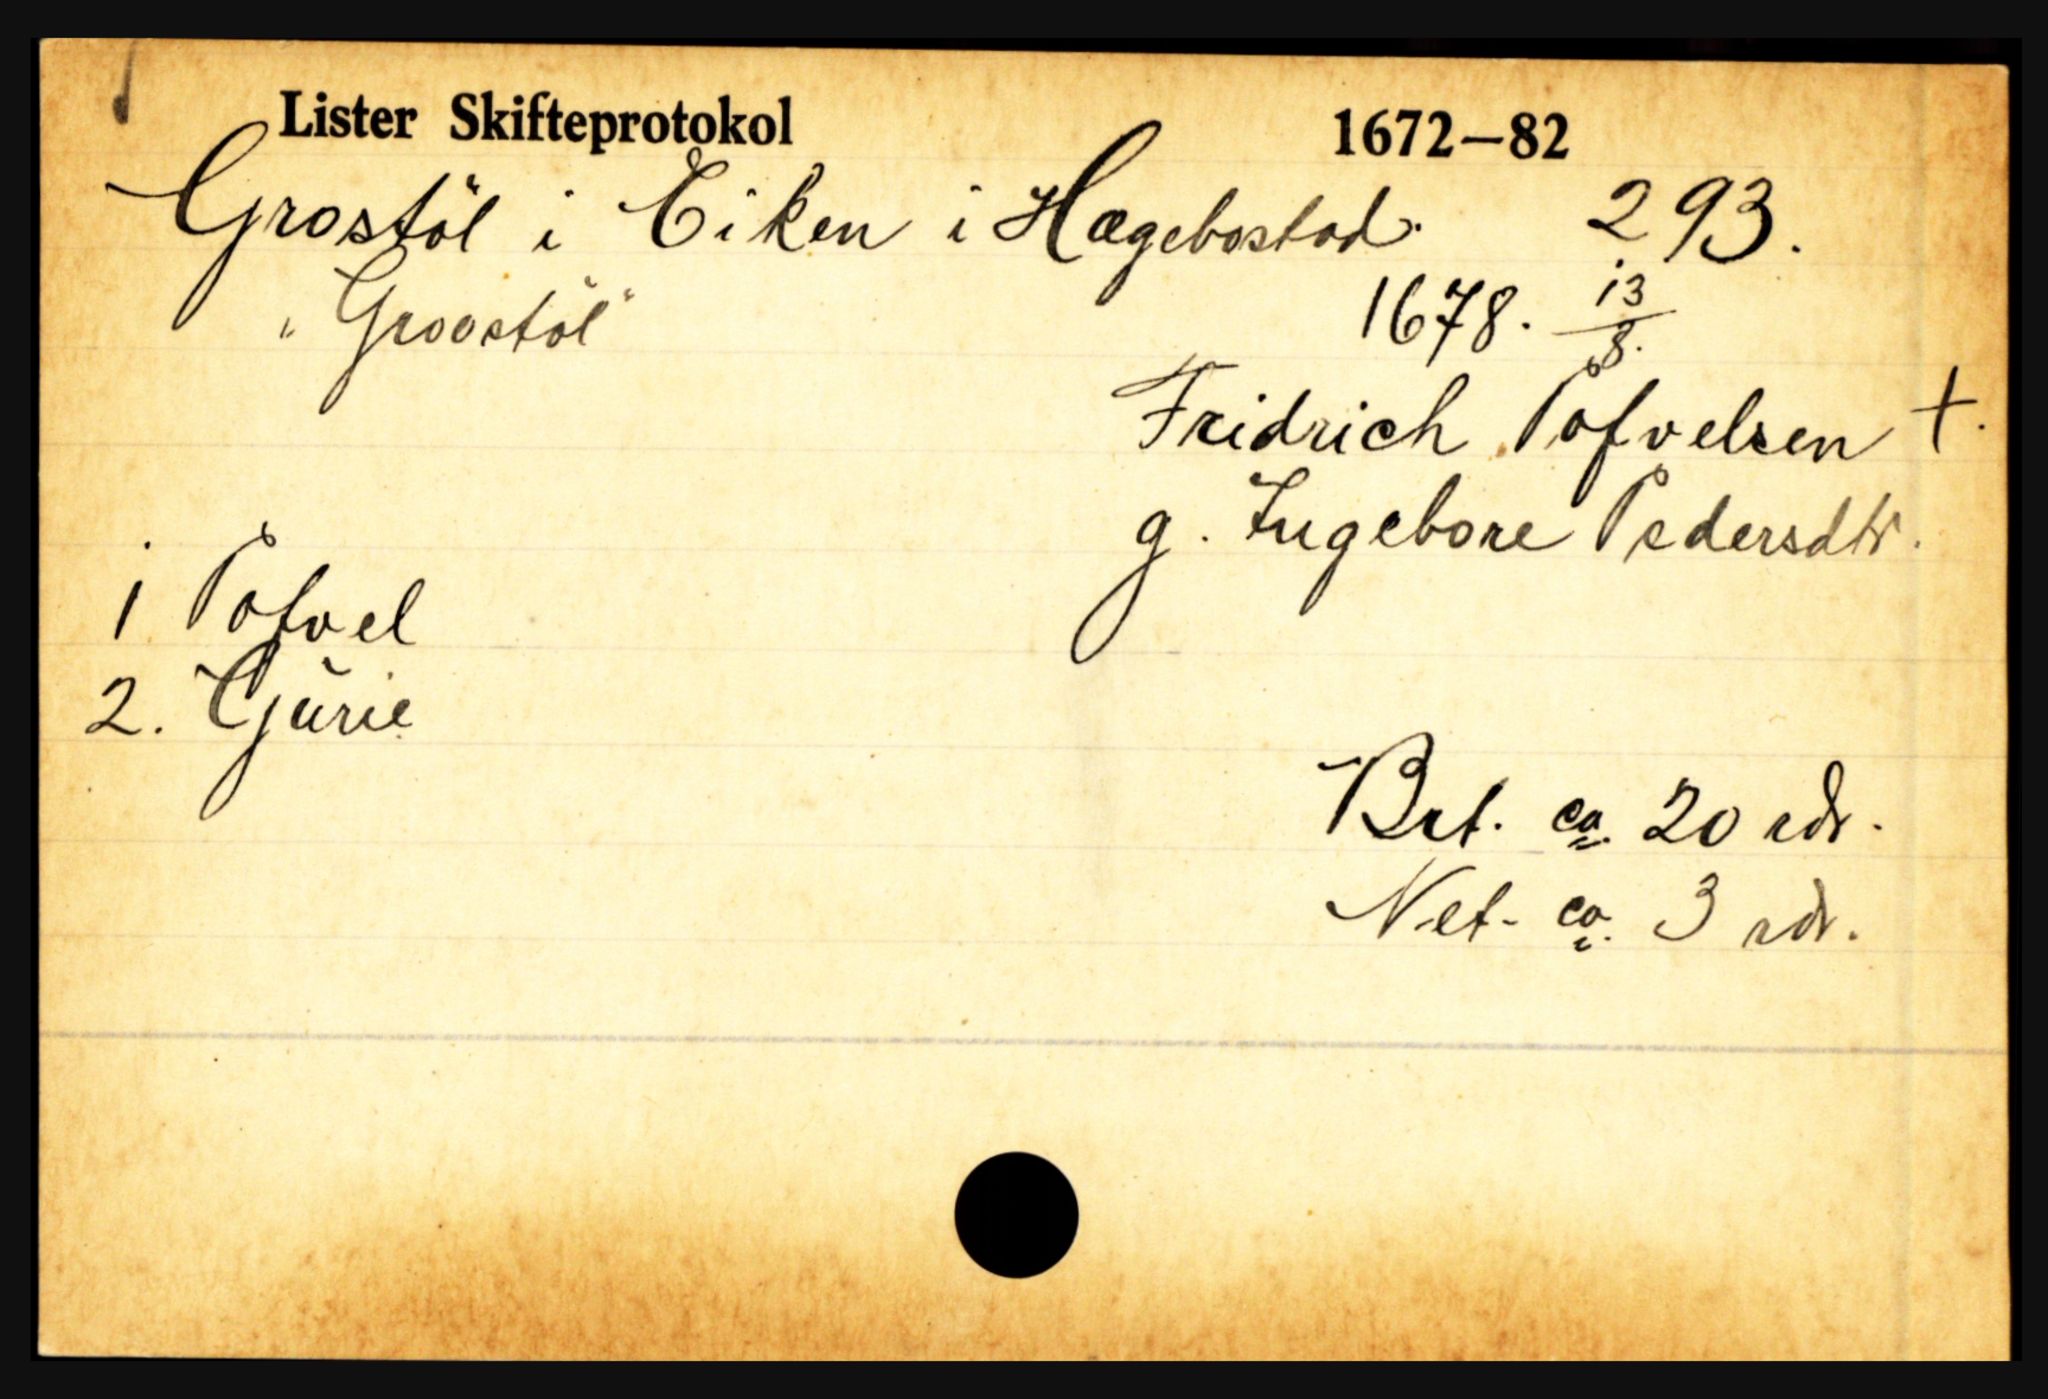 Lister Skifteprotokol 1672—82
Grostöl i Eiken i Hægebostad. 293.
"Groostöl" 1678. 13/8.
Fridrich Pofvelsen +.
g. Ingebore Pedersdtr.
1 Pofvel
2. Gurie
Brt. ca. 20 rdr.
Net. ca. 3 rdr.